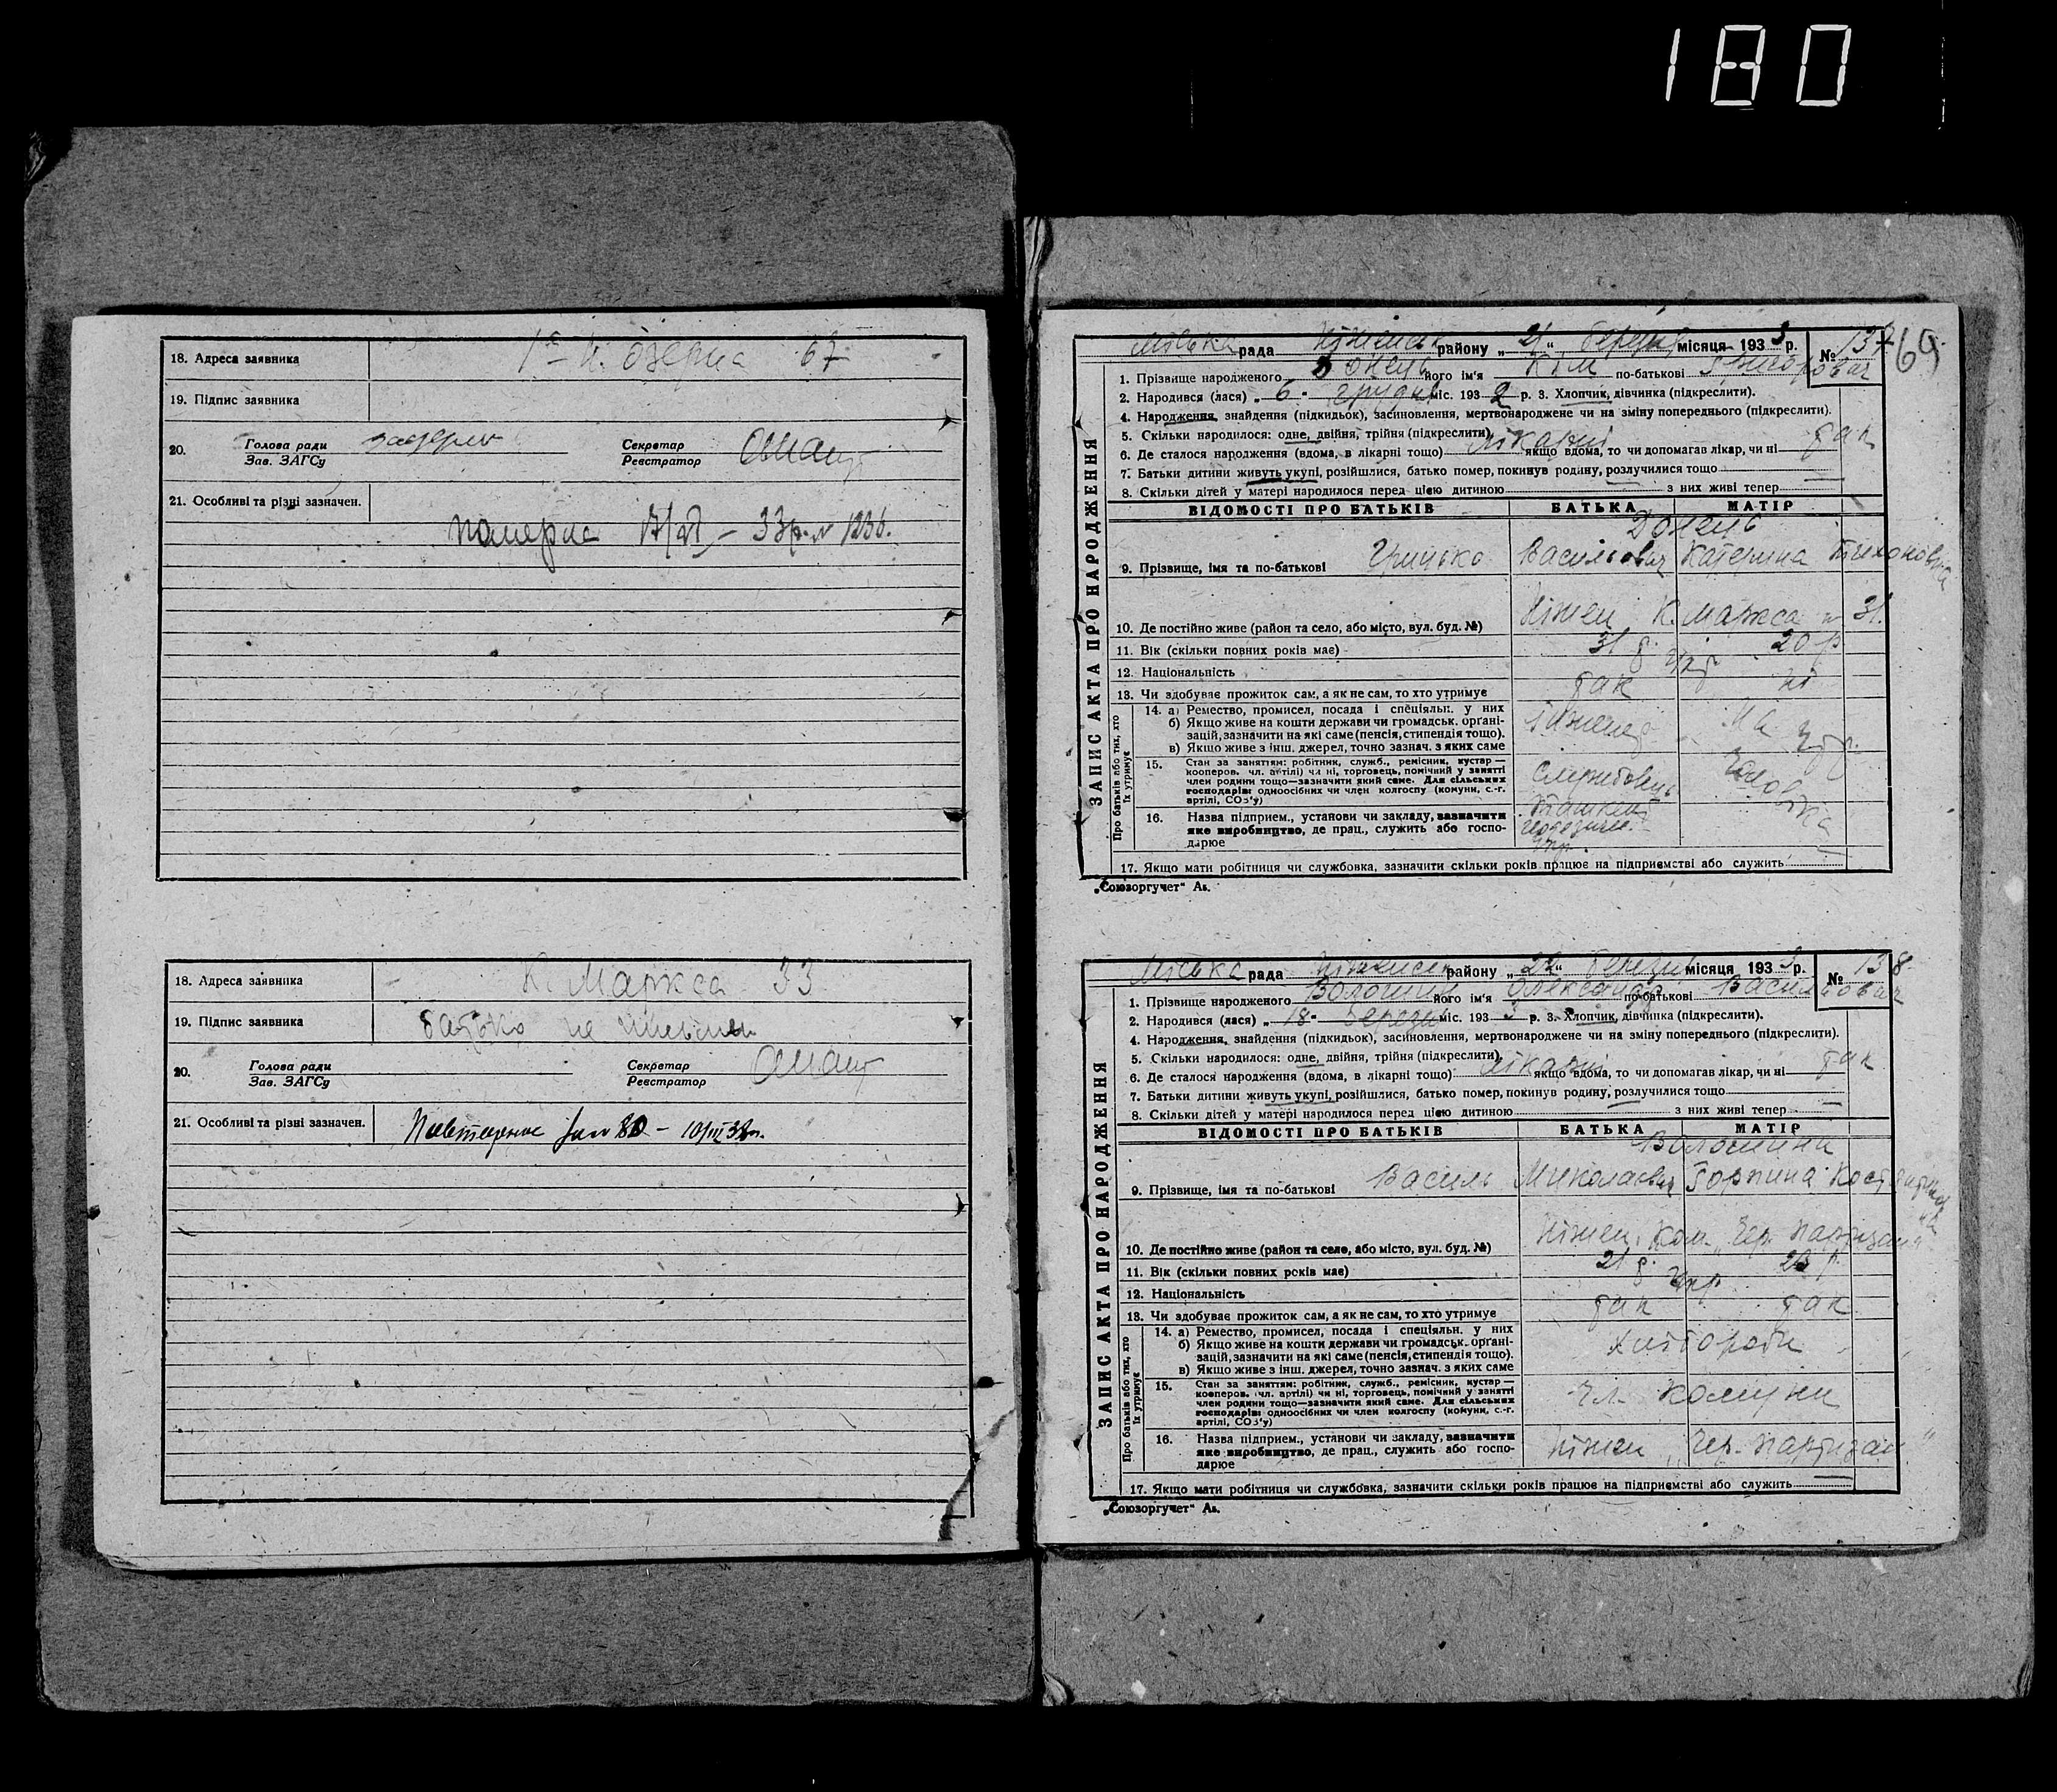 180
18. Адреса заявника
67
19. Підпис заявника
20. Голова ради
Зав. ЗАГСу
Секретар
Реєстратор
21. Особливі та різні зазначен.
померла 33р. № 1236.
18. Адреса заявника К. Маркса 33
19. Підпис заявника батько не
20. Голова ради
Зав. ЗАГСу
Секретар
Реєстратор
21. Особливі та різні зазначен.
69
ЗАПИС АКТА ПРО НАРОДЖЕННЯ
Міська рада Ніженськ району „21“ березня місяця 1933 р. № 137
1. Прізвище народженого Донець його ім'я Кім по-батькові Григорович
2. Народився (лася) „6" грудня міс. 1932 р. 3. Хлопчик, дівчинка (підкреслити).
4. Народження, знайдення (підкидьок), засиновлення, мертвонароджене чи на зміну попереднього (підкреслити).
5. Скільки народилося: одне, двійня, трійня (підкреслити)
6. Де сталося народження (вдома, в лікарні тощо) лікарні якщо вдома, то чи допомагав лікар, чи ні так
7. Батьки дитини живуть укупі, розійшлися, батько помер, покинув родину, розлучилися тощо
8. Скільки дітей у матері народилося перед цією дитиною з них живі тепер
ВІДОМОСТІ ПРО БАТЬКІВ БАТЬКА МАТІР
Донець
9. Прізвище, імя та по-батькові Грицько Васильович Катерина Тихоновна
10. Де постійно живе (район та село, або місто, вул. буд. №) Ніжен К. Маркса № 31.
11. Вік (скільки повних років має) 31 р. 20 р
12. Національність Укр.
13. Чи здобуває прожиток сам, а як не сам, то хто утримує так ні
Про батьків або тих, хто їх утримує
14. а) Ремество, промисел, посада і спеціяльн. у них
б) Якщо живе на кошти держави чи громадськ. органі-
зацій, зазначити на які саме (пенсія, стипендія тощо).
в) Якщо живе з інш. джерел, точно зазнач. з яких саме
інженер
На утр.
чоловіка
15. Стан за заняттям: робітник, служб., ремісник, кустар —
кооперов. чл. артілі) чи ні, торговець, помічний у занятті
член родини тощо—зазначити який саме. Для сільських
господарів: одноосібних чи член колгоспу (комуни, с.-г.
артілі, СОЗ'у)
службовець
16. Назва підприєм., установи чи закладу, зазначити
яке виробництво, де прац., служить або госпо-
дарює
17. Якщо мати робітниця чи службовка, зазначити скільки років працює на підприємстві або служить
„Союзоргучет“ Ав.
ЗАПИС АКТА ПРО НАРОДЖЕННЯ
Міська рада району „22“ березня місяця 1933 р. № 138
1. Прізвище народженого Волошин його ім'я Олександр по-батькові Васильович
2. Народився (лася) „18" березня міс. 1933 р. 3. Хлопчик, дівчинка (підкреслити).
4. Народження, знайдення (підкидьок), засиновлення, мертвонароджене чи на зміну попереднього (підкреслити).
5. Скільки народилося: одне, двійня, трійня (підкреслити)
6. Де сталося народження (вдома, в лікарні тощо) лікарні якщо вдома, то чи допомагав лікар, чи ні так
7. Батьки дитини живуть укупі, розійшлися, батько помер, покинув родину, розлучилися тощо
8. Скільки дітей у матері народилося перед цією дитиною з них живі тепер
ВІДОМОСТІ ПРО БАТЬКІВ БАТЬКА МАТІР
Волошини
9. Прізвище, імя та по-батькові Василь Миколаєвич Горпина
10. Де постійно живе (район та село, або місто, вул. буд. №) Ніжен, Ком. „Чер. Партизан"
11. Вік (скільки повних років має) 21 р.
12. Національність Укр.
13. Чи здобуває прожиток сам, а як не сам, то хто утримує так так
Про батьків або тих, хто їх утримує
14. а) Ремество, промисел, посада і спеціяльн. у них
б) Якщо живе на кошти держави чи громадськ. органі-
зацій, зазначити на які саме (пенсія, стипендія тощо).
в) Якщо живе з інш. джерел, точно зазнач. з яких саме
хлібороби
15. Стан за заняттям: робітник, служб., ремісник, кустар —
кооперов. чл. артілі) чи ні, торговець, помічний у занятті
член родини тощо—зазначити який саме. Для сільських
господарів: одноосібних чи член колгоспу (комуни, с.-г.
артілі, СОЗ'у)
чл. комуни
16. Назва підприєм., установи чи закладу, зазначити
яке виробництво, де прац., служить або госпо-
дарює
Ніжен „Чер. Партизан"
17. Якщо мати робітниця чи службовка, зазначити скільки років працює на підприємстві або служить
„Союзоргучет“ Ав.